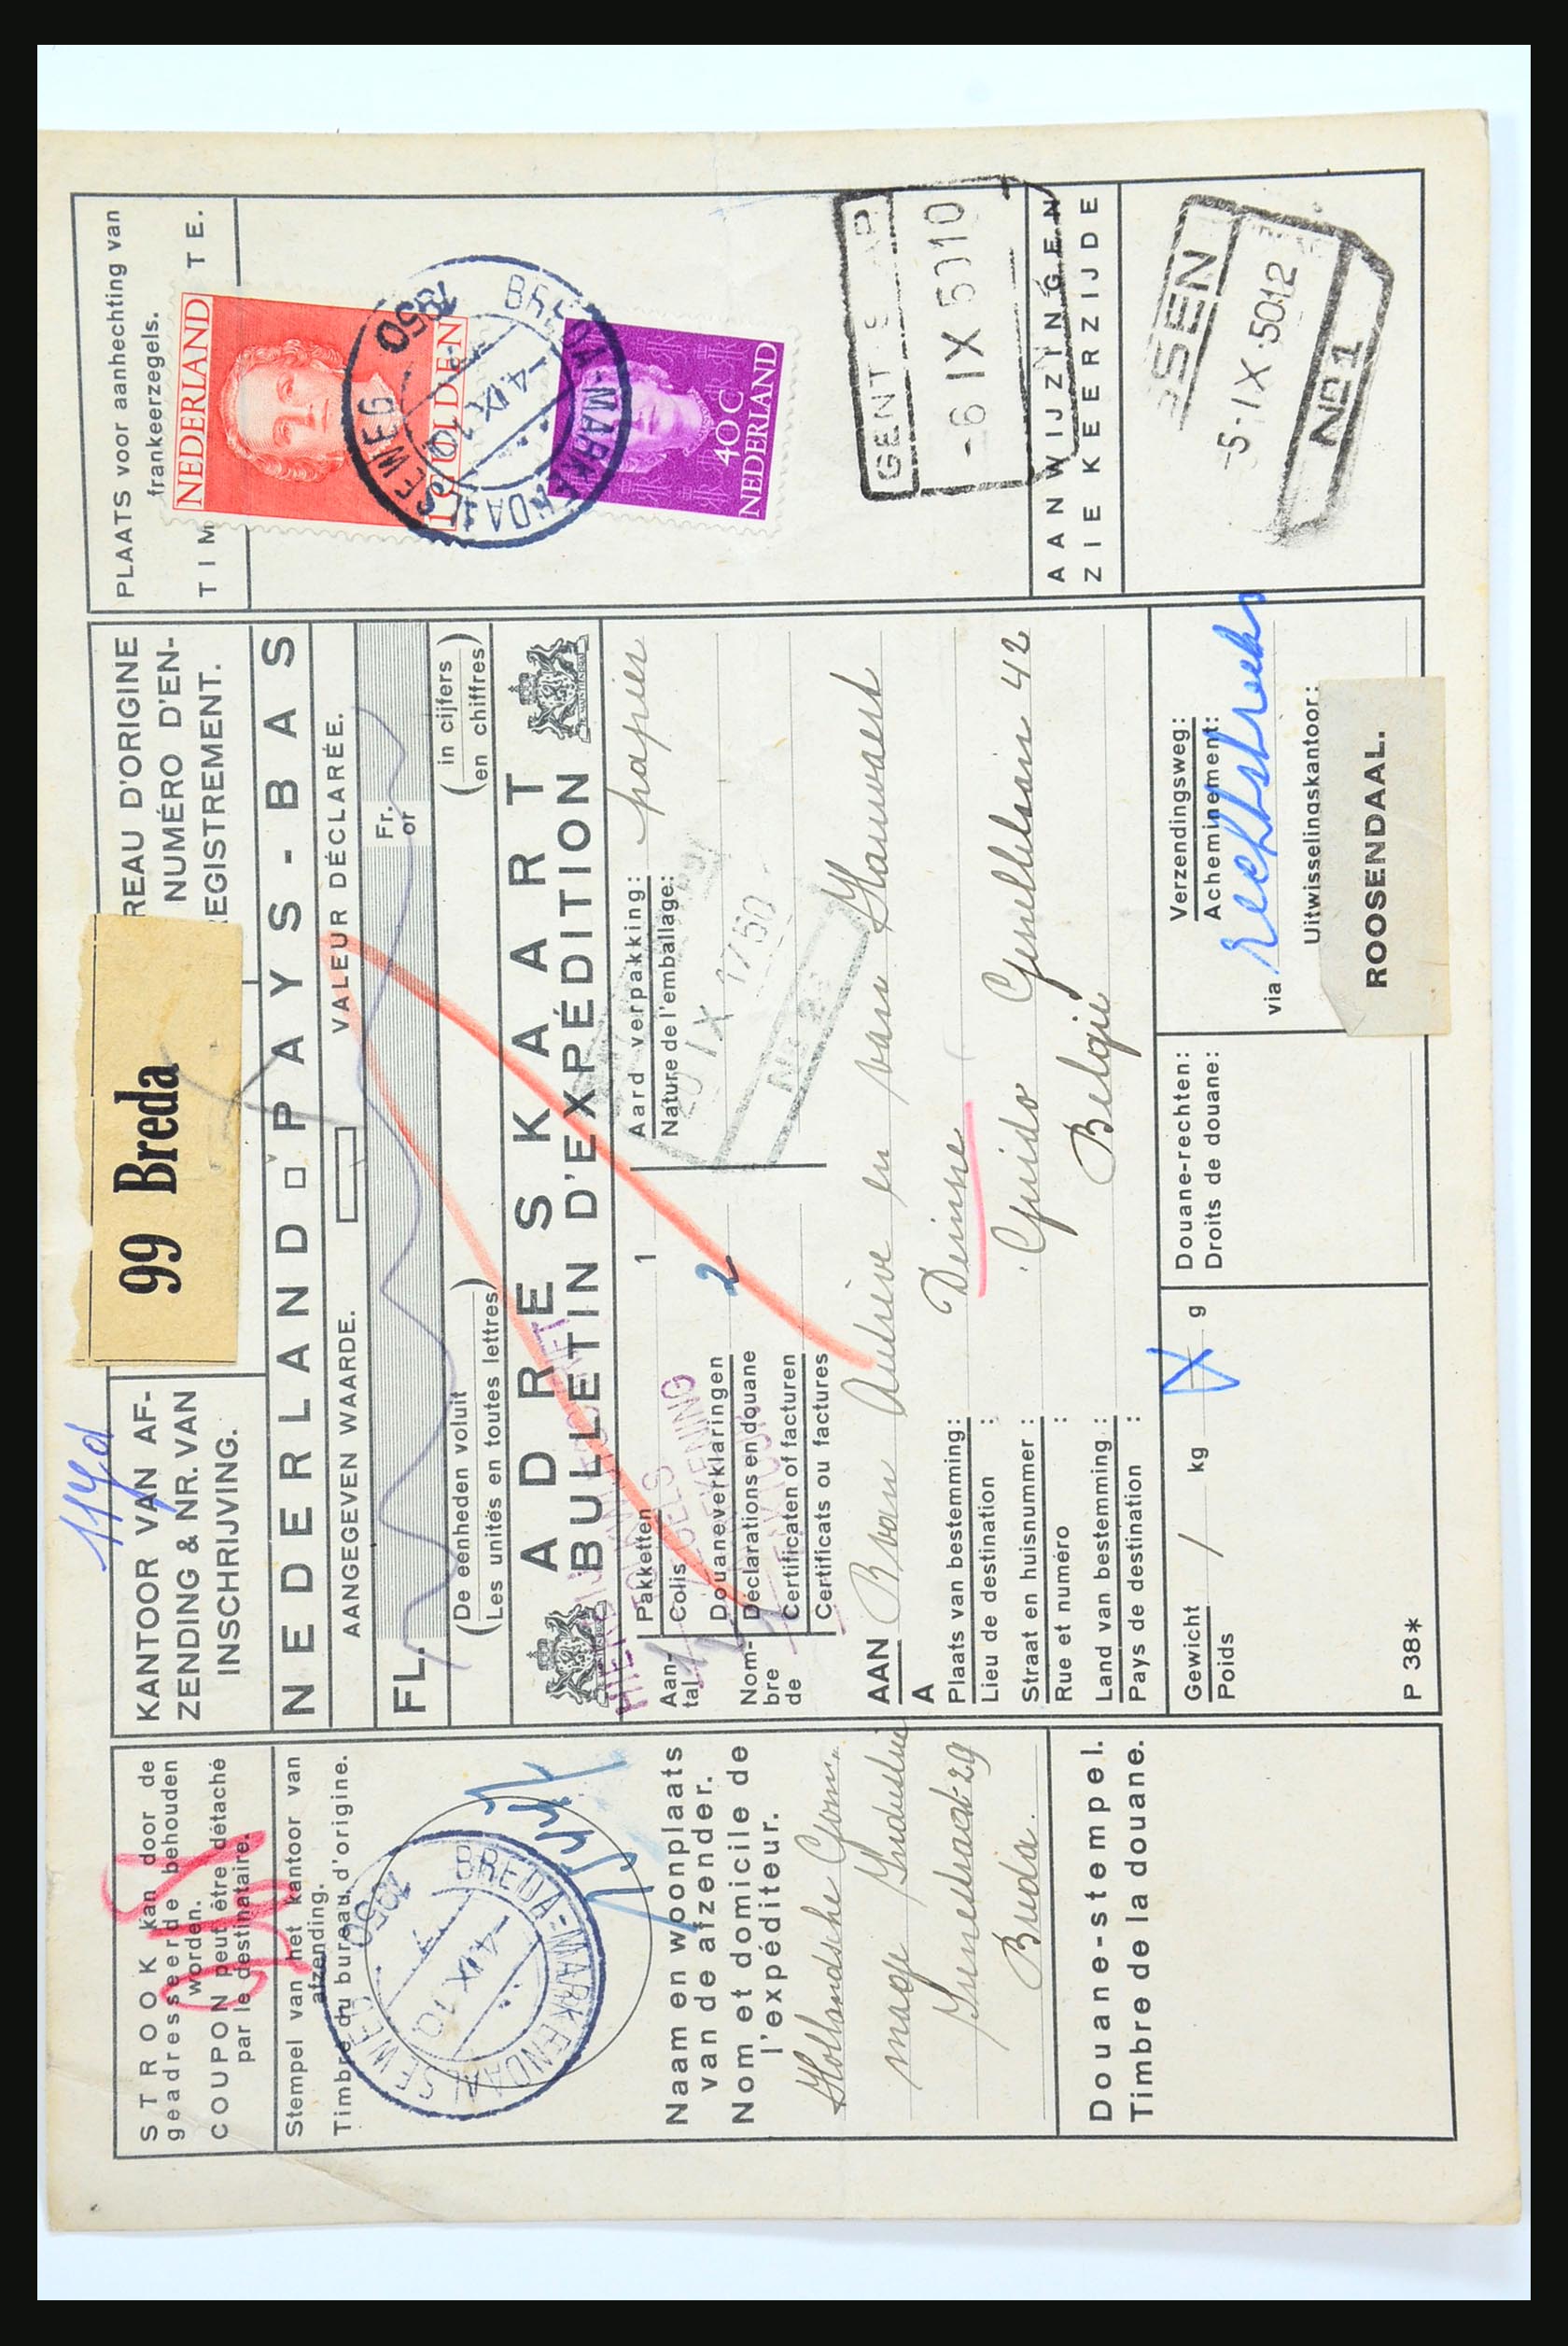 STROOK kan door de
geadresseerde behouden
worden.
COUPON peut être détaché
par le destinataire.
Stempel van het kantoor van
afzending.
Timbre du bureau d'origine.
BREDA-MARKENDAALSEWEG
1950
-4.IX.10
Naam en woonplaats
van de afzender.
Nom et domicile de
l'expéditeur.
Hollandsche
Breda.
Douane-stempel.
Timbre de la douane.
KANTOOR VAN AF-
ZENDING & NR. VAN
INSCHRIJVING.
99 Breda
REAU D'ORIGINE
NUMÉRO D'EN-
REGISTREMENT.
NEDERLAND PAYS-BAS
AANGEGEVEN WAARDE.
VALEUR DÉCLARÉE.
FL.
Fr.
or
(De eenheden voluit)
(Les unités en toutes lettres)
(in cijfers)
(en chiffres)
ADRESKAART
BULLETIN D'EXPÉDITION
Aan-
tal
Nom-
bre
de
Pakketten
Colis
1
Douaneverklaringen
Déclarations en douane
2
Certificaten of facturen
Certificats ou factures
Aard verpakking:
Nature de l'emballage:
papier
AAN
A
Plaats van bestemming:
Lieu de destination :
Deinse
Straat en huisnummer :
Rue et numéro :
Guido Gesellelaan 42
Land van bestemming :
Pays de destination :
Belgie
Gewicht
Poids
kg
g
Douane-rechten:
Droits de douane:
Verzendingsweg:
Acheminement:
via rechtstreeks
Uitwisselingskantoor:
ROOSENDAAL.
P 38*
PLAATS voor aanhechting van
frankeerzegels.
TIM TE.
NEDERLAND
1 GULDEN
40 C
NEDERLAND
BREDA-MARKENDAALSEWEG
1950
-4.IX.10
GENT
-6 IX 5010
AANWIJZINGEN
ZIE KEERZIJDE
SSEN
-5-IX-5012
No 1